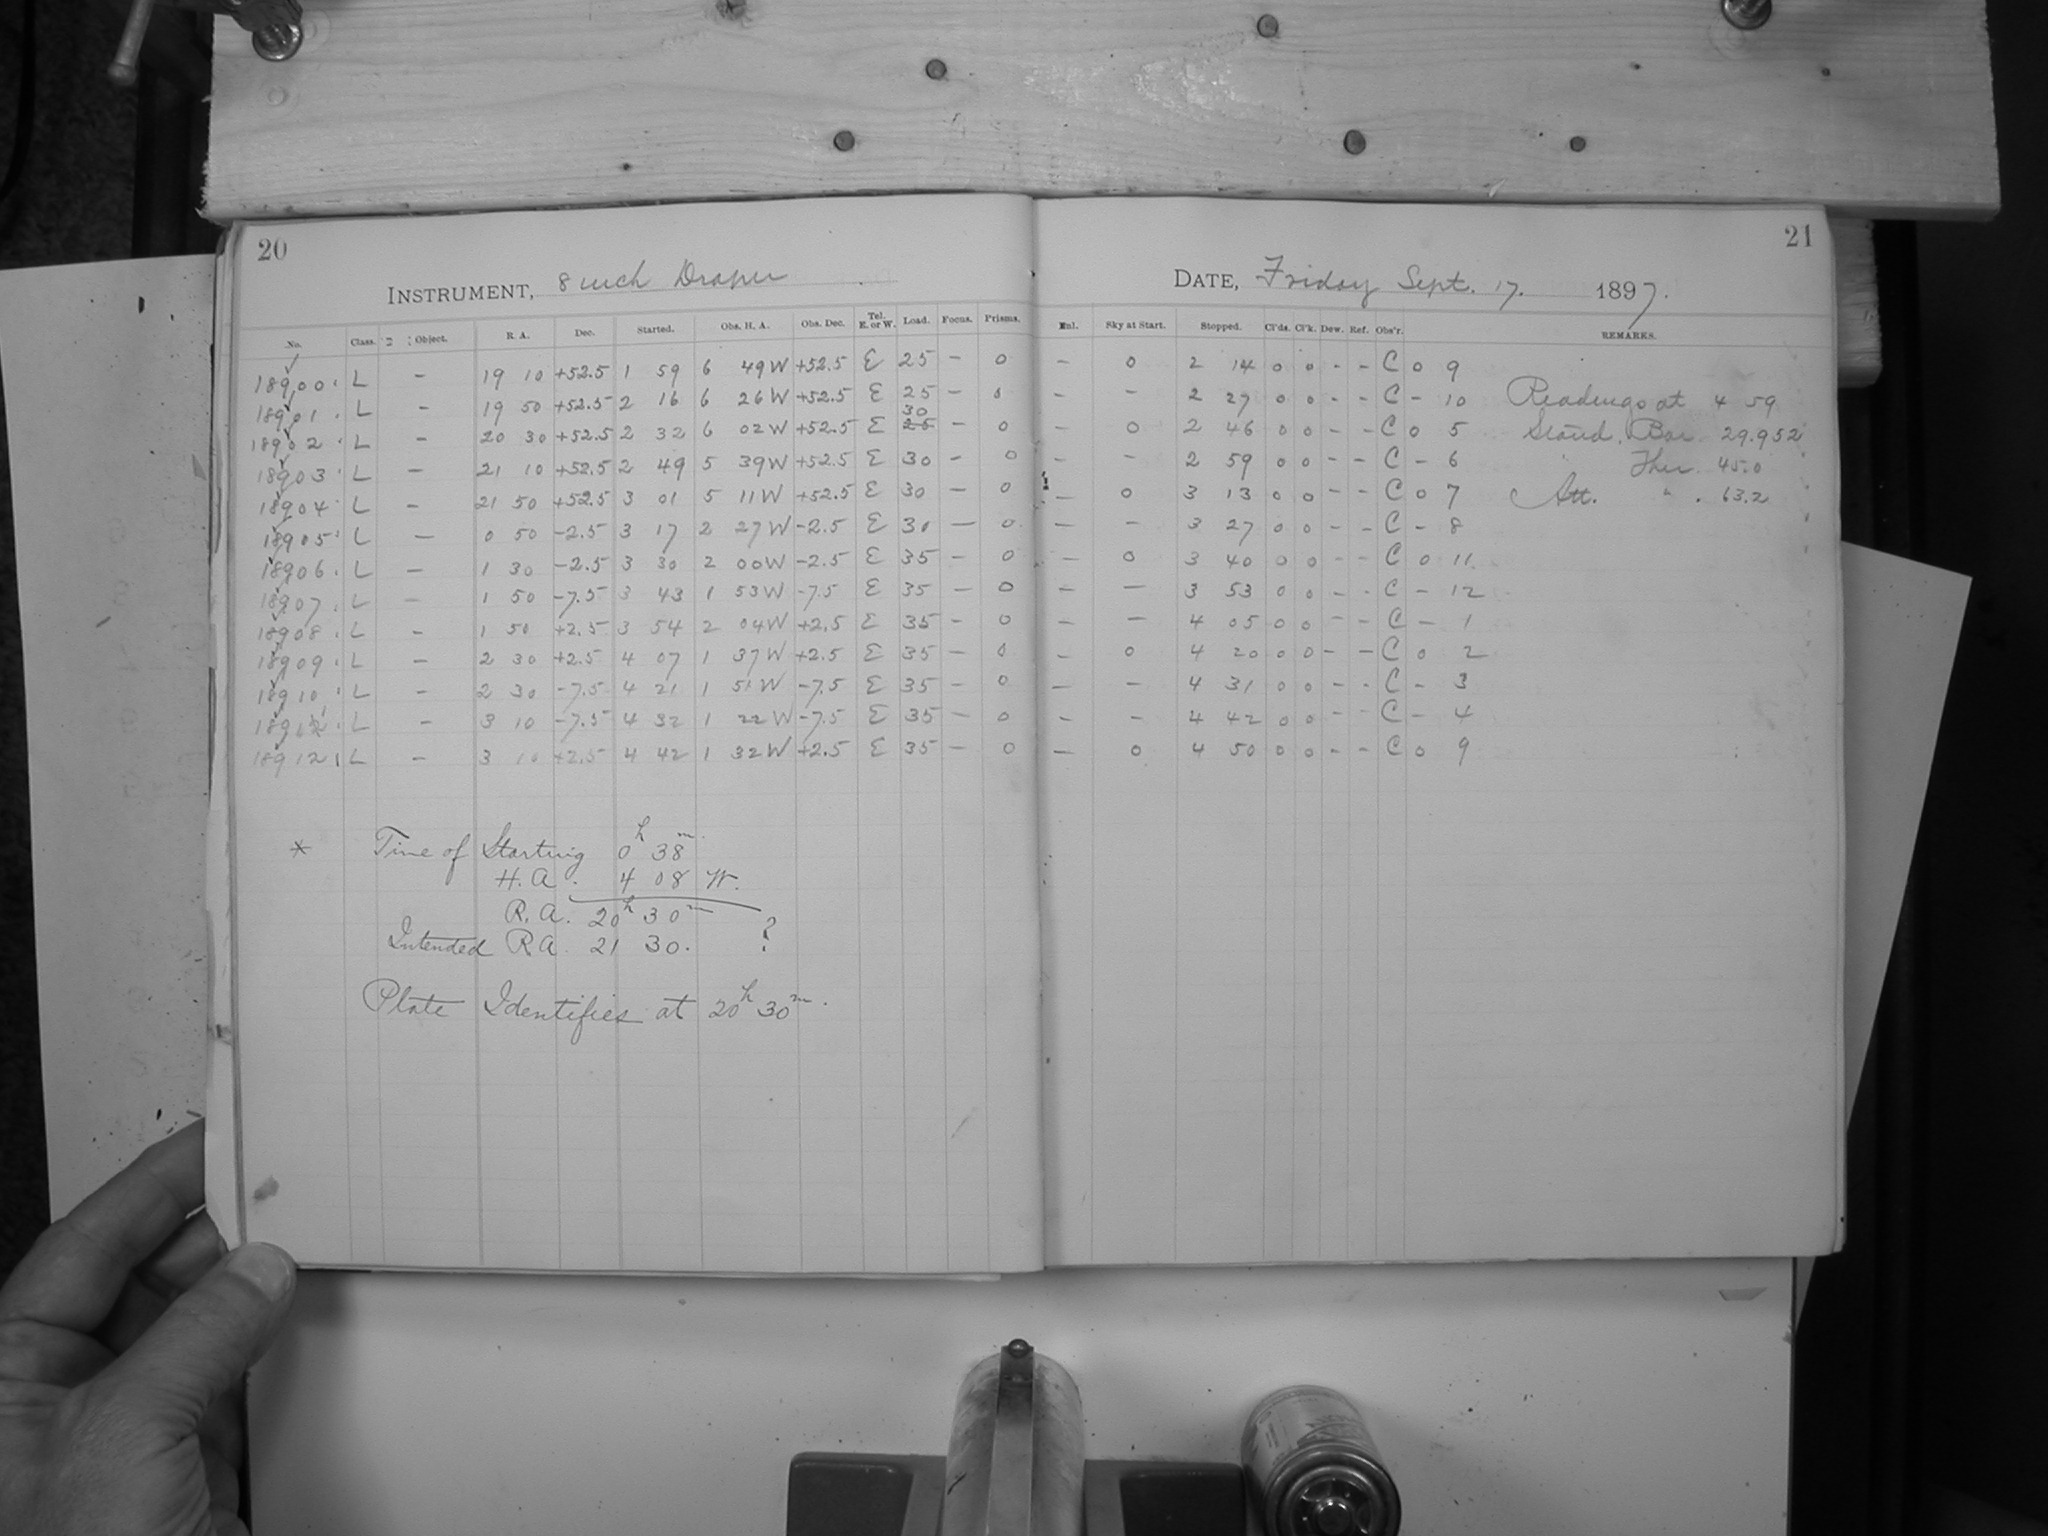 20
INSTRUMENT, 8 inch Draper
No. Class. Object. R. A. Dec. Started. Obs. H. A. Obs. Dec. Tel. E. or W. Load. Focus. Prisms.
18900 L - 19 10 +52.5 1 59 6 49 W +52.5 E 25 - 0
18901 L - 19 50 +52.5 2 16 6 26 W +52.5 E 25 - 0
30
18902 L - 20 30 +52.5 2 32 6 02 W +52.5 E 25 - 0
18903 L - 21 10 +52.5 2 49 5 39 W +52.5 E 30 - 0
18904 L - 21 50 +52.5 3 01 5 11 W +52.5 E 30 - 0
18905 L - 0 50 -2.5 3 17 2 27 W -2.5 E 30 - 0
18906 L - 1 30 -2.5 3 30 2 00 W -2.5 E 35 - 0
18907 L - 1 50 -7.5 3 43 1 53 W -7.5 E 35 - 0
18908 L - 1 50 +2.5 3 54 2 04 W +2.5 E 35 - 0
18909 L - 2 30 +2.5 4 07 1 37 W +2.5 E 35 - 0
18910 L - 2 30 -7.5 4 21 1 51 W -7.5 E 35 - 0
L - 3 10 -7.5 4 32 1 22 W -7.5 E 35 - 0
18912 L - 3 10 +2.5 4 42 1 32 W +2.5 E 35 - 0
* Time of Starting 0h 38m
H. A. 4 08 W.
R. A. 20h 30m
Intended R A. 21 30. ?
Plate Identifies at 20h 30m.
21
DATE, Friday Sept. 17. 1897.
Enl. Sky at Start. Stopped. Cl'ds. Cl'k. Dew. Ref. Obs'r. REMARKS.
- 0 2 14 0 0 - - C 0 9
- - 2 27 0 0 - - C - 10 Readings at 4 59
- 0 2 46 0 0 - - C 0 5 Stand. Bar. 29.952
- - 2 59 0 0 - - C - 6 " Ther. 45.0
- 0 3 13 0 0 - - C 0 7 Att. " . 63.2
- - 3 27 0 0 - - C - 8
- 0 3 40 0 0 - - C 0 11
- - 3 53 0 0 - - C - 12
- - 4 05 0 0 - - C - 1
- 0 4 20 0 0 - - C 0 2
- - 4 31 0 0 - - C - 3
- - 4 42 0 0 - - C - 4
- 0 4 50 0 0 - - C 0 9